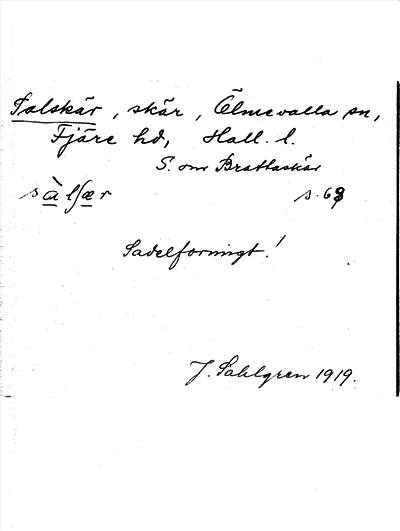 Salskär, skär, Ölmevalla sn,
Fjäre hd, Hall. l.
S. om Brattaskär
sàlſær s. 68
Sadelformigt!
J. Sahlgren 1919.